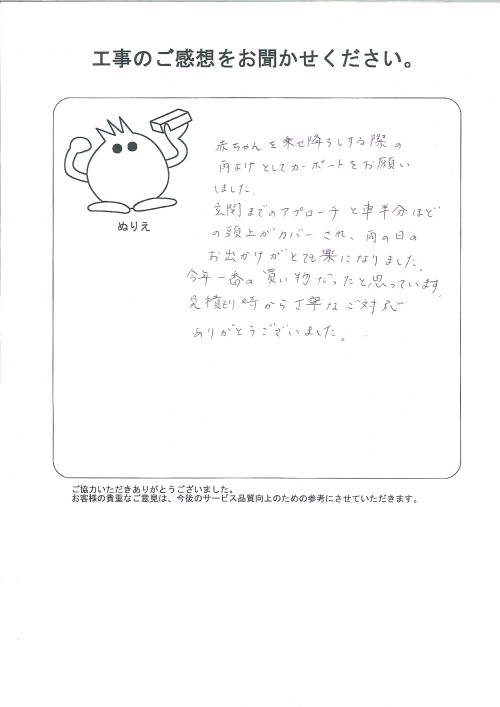 工事のご感想をお聞かせください。
赤ちゃんを乗せ降ろしする際の
雨よけとしてカーポートをお願い
しました。
玄関までのアプローチと車半分ほど
の頭上がカバーされ、雨の日の
お出かけがとても楽になりました。
今年一番の買い物だったと思っています。
見積もり時から丁寧なご対応
ありがとうございました。
ぬりえ
ご協力いただきありがとうございました。
お客様の貴重なご意見は、今後のサービス品質向上のための参考にさせていただきます。